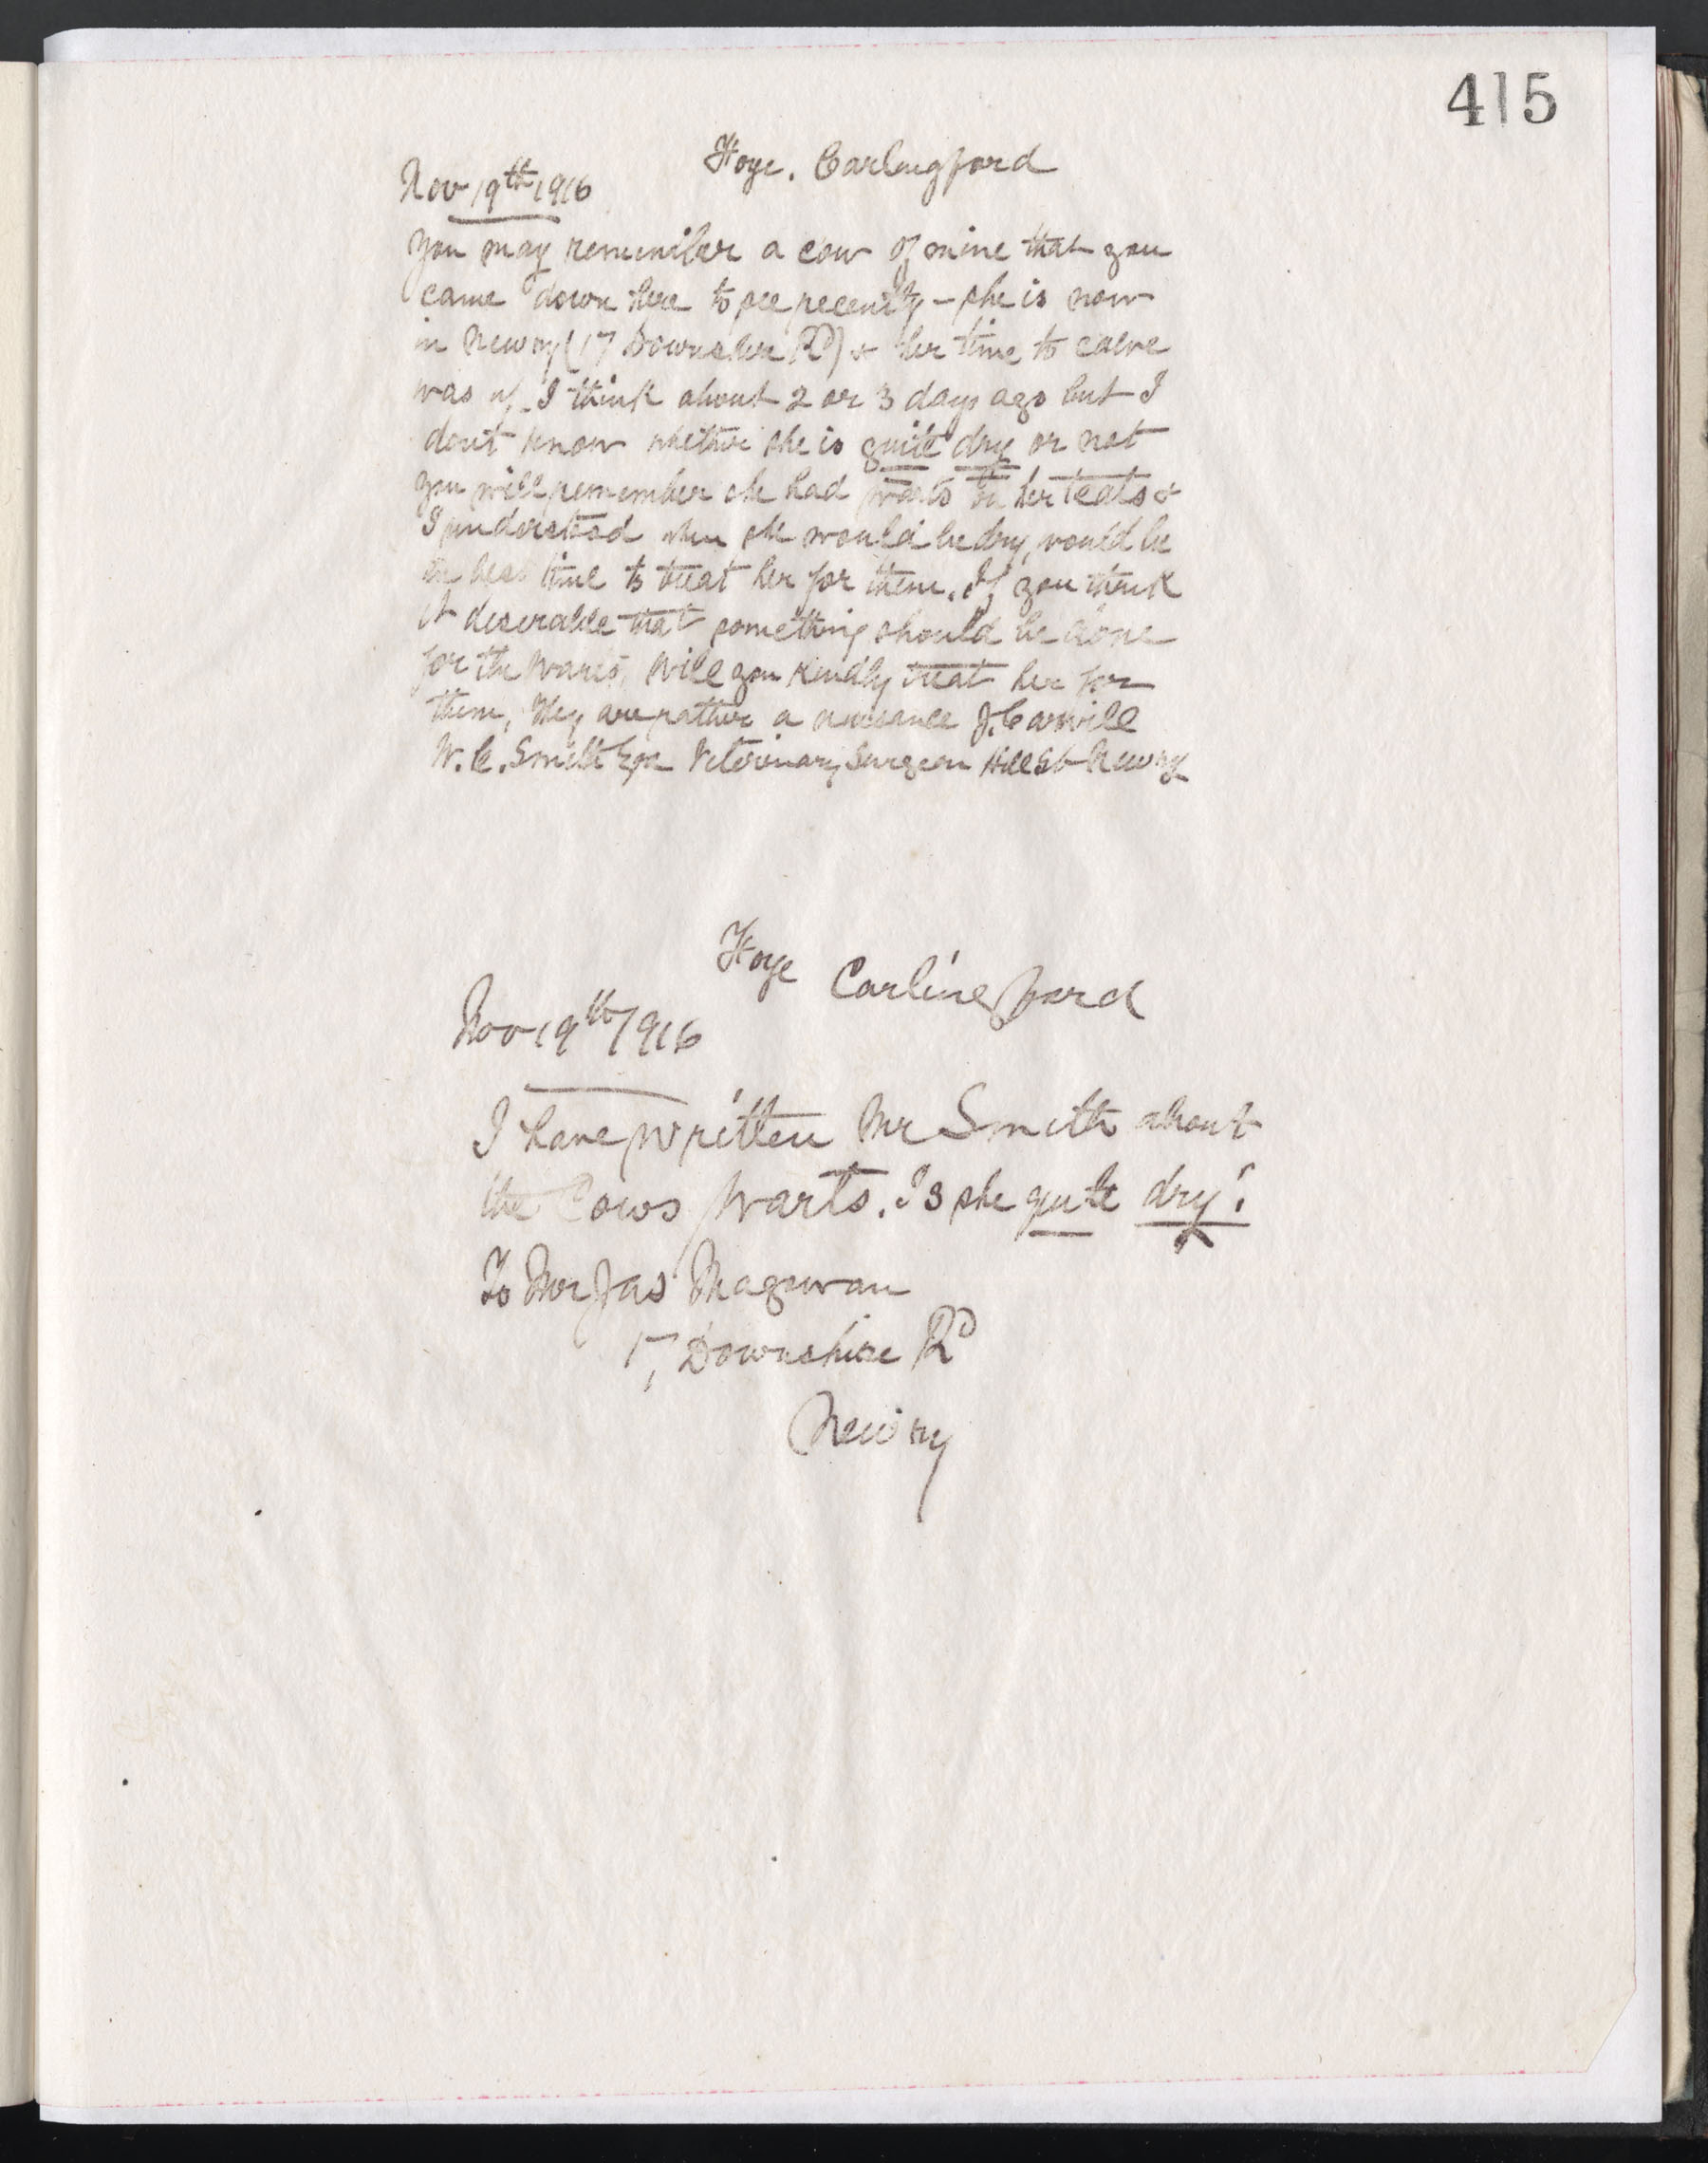 415
Hoye. Carlingford
Nov 19th 1916
You may remember a cow of mine that you
came down here to see recently - she is now
in Newry (17 Downshire Rd) & her time to calve
was up I think about 2 or 3 days ago but I
dont know whether she is quite dry or not
you will remember she had warts on her teats &
I understood when she would be dry, would be
the best time to treat her for them. If you think
it desirable that something should be done
for the warts, Will you kindly treat her for
them, they are rather a nuisance J. Carvill
W. C. Smith Esq Veterinary Surgeon Hill St Newry
Hoye Carlingford
Nov 19th 1916
I have written Mr Smith about
the Cows Warts. Is she quite dry?
To Mr Jas Magowan
17, Downshire Rd
Newry